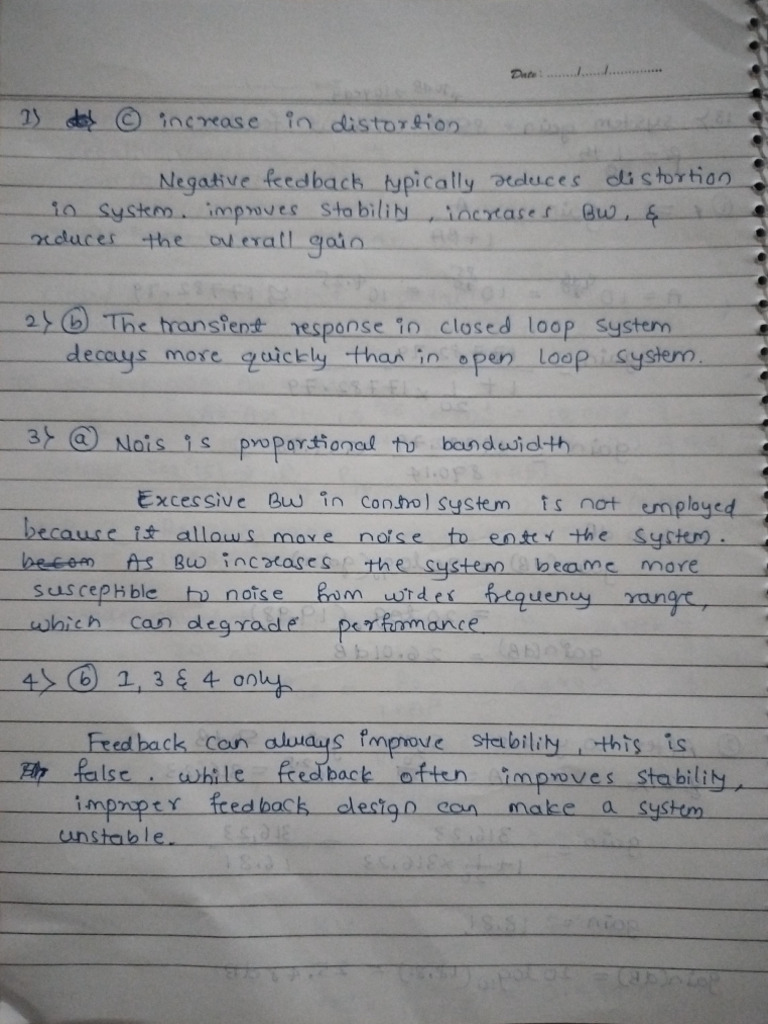 Date : ......../......./..............
1) (c) increase in distortion
Negative feedback typically reduces distortion
in system. improves stability, increases BW, &
reduces the overall gain
2) (b) The transient response in closed loop system
decays more quickly than in open loop system.
3) (a) Nois is proportional to bandwidth
Excessive BW in control system is not employed
because it allows more noise to enter the system.
As BW increases the system became more
susceptible to noise from wider frequency range,
which can degrade performance
4) (b) 1, 3 & 4 only
Feedback can always improve stability, this is
false. while feedback often improves stability,
improper feedback design can make a system
unstable.